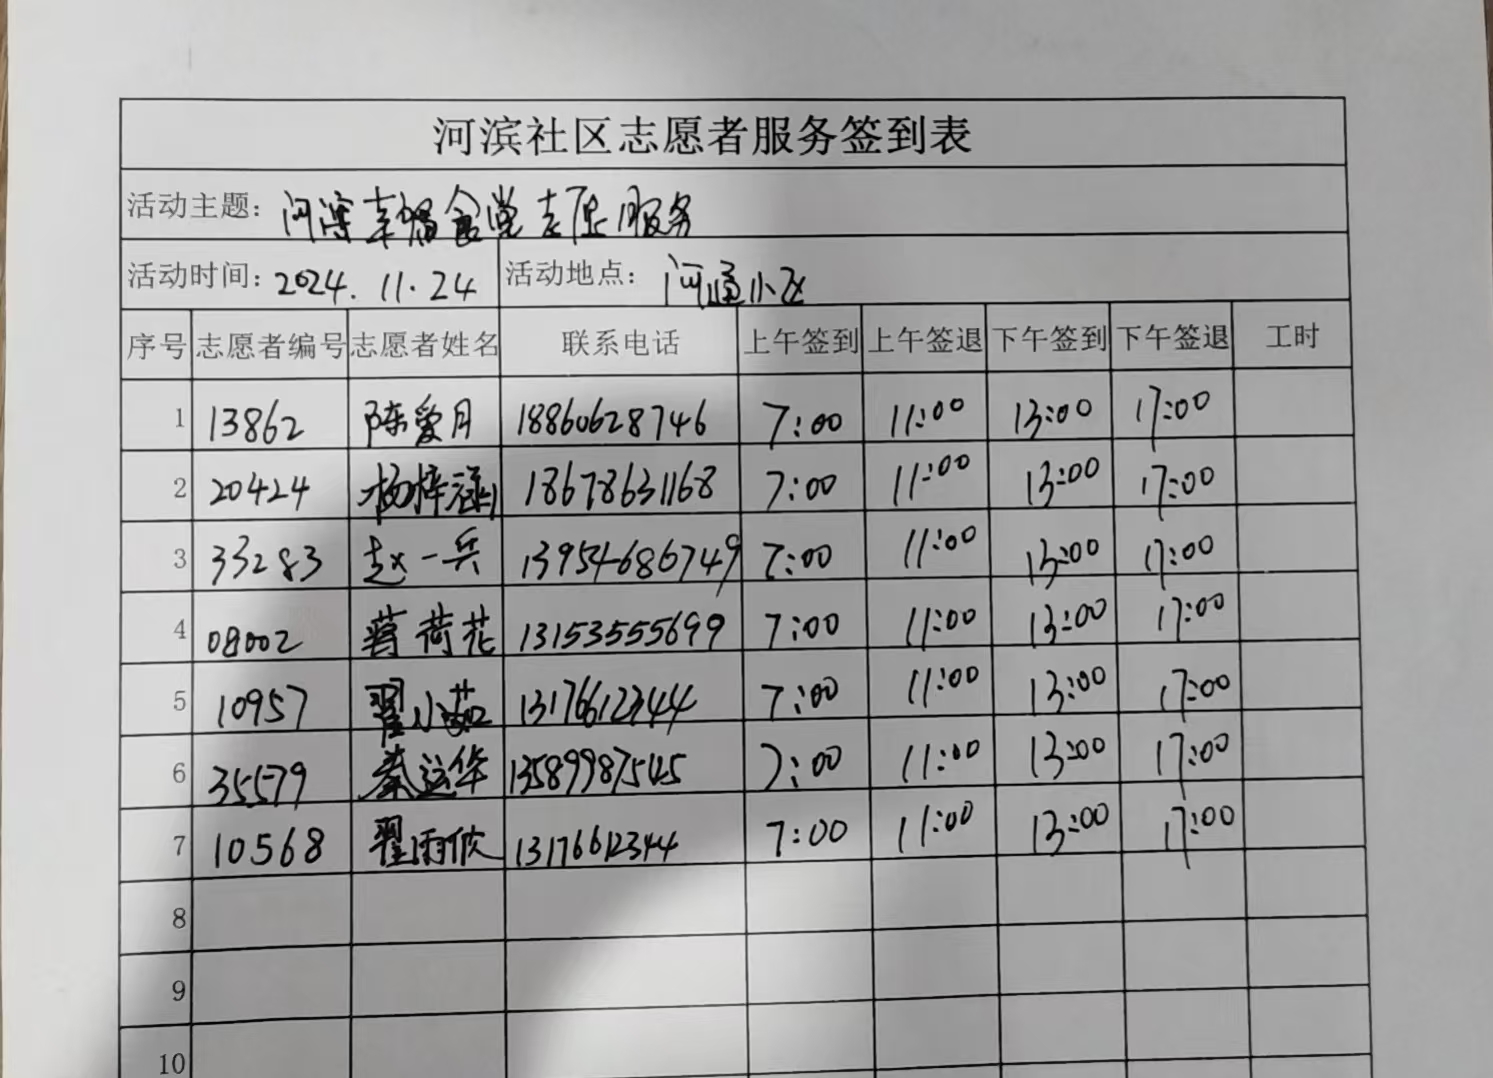 河滨社区志愿者服务签到表
活动主题：河滨幸福食堂志愿服务
活动时间：2024.11.24 活动地点：河通小区
序号 志愿者编号 志愿者姓名 联系电话 上午签到 上午签退 下午签到 下午签退 工时
1 13862 陈爱月 18860628746 7:00 11:00 13:00 17:00
2 20424 杨梓涵 18678631168 7:00 11:00 13:00 17:00
3 33283 赵一兵 13954686749 7:00 11:00 13:00 17:00
4 08002 蒋荷花 13153555699 7:00 11:00 13:00 17:00
5 10957 翟小茹 13176612344 7:00 11:00 13:00 17:00
6 35579 秦运华 13589987545 7:00 11:00 13:00 17:00
7 10568 翟雨欣 13176612344 7:00 11:00 13:00 17:00
8
9
10